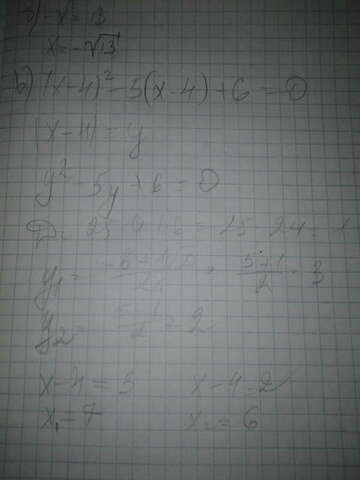 -x² = 13
x = -√13
b) (x-4)² - 5(x-4) + 6 = 0
(x-4) = y
y² - 5y + 6 = 0
D = 25 - 4·6 = 25 - 24 = 1
y₁ = = (5+1)/2 = 3
y₂ = = 2
x-4 = 3 x-4=2
x₁ = 7 x₂ = 6